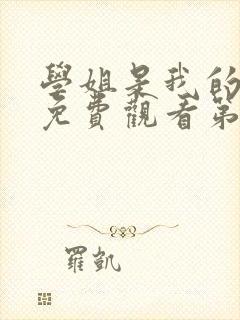 學姐是我的
免費觀看第
羅凱